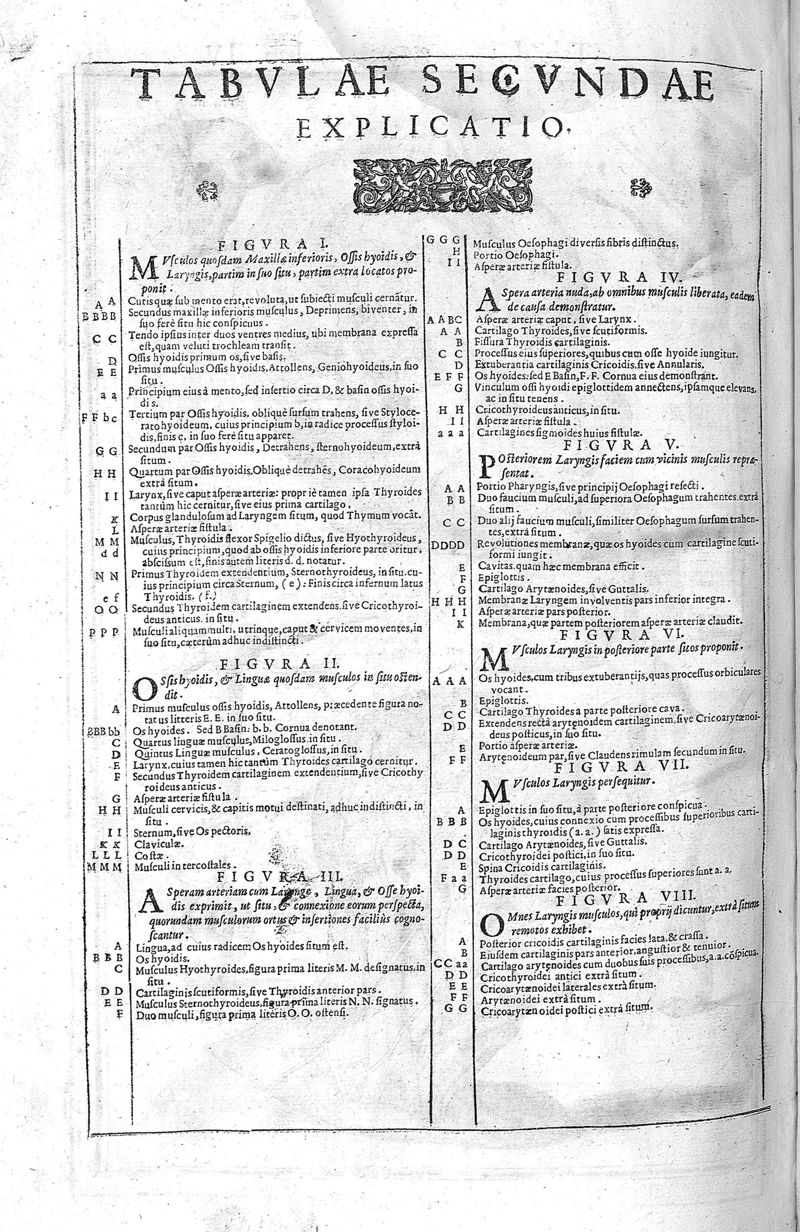 TABVLAE SECVNDAE
EXPLICATIO.
FIGVRA I.
MVſculos quoſdam Maxillæ inferioris, Oſsis hyoidis, &
Laryngis, partim in ſuo ſitu, partim extra locatos pro-
ponit.
A A Cutis quæ ſub mento erat, revoluta, ut ſubiecti muſculi cernātur.
BBBB Secundus maxillæ inferioris muſculus, Deprimens, biventer, in
ſuo ferè ſitu hic conſpicuus.
C C Tendo ipſius inter duos ventres medius, ubi membrana expreſſa
eſt, quam veluti trochleam tranſit.
D Oſſis hyoidis primum os, ſive baſis.
E E Primus muſculus Oſſis hyoidis, Attollens, Geniohyoideus, in ſuo
ſitu.
a a Principium eius à mento, ſed inſertio circa D, & baſin oſſis hyoi-
dis.
F F b c Tertium par Oſſis hyoidis, obliquè ſurſum trahens, ſive Styloce-
ratohyoideum. cuius principium b, ia radice proceſſus ſtyloi-
dis, finis c. in ſuo ferè ſitu apparet.
G G Secundum par Oſſis hyoidis, Detrahens, ſternohyoideum, extrà
ſitum.
H H Quartum par Oſſis hyoidis, Obliquè detrahēs, Coracohyoideum
extrà ſitum.
I I Larynx, ſive caput aſperæ arteriæ: propriè tamen ipſa Thyroides
tantùm hic cernitur, ſive eius prima cartilago.
K Corpus glandulosum ad Laryngem ſitum, quod Thymum vocāt.
L Aſperæ arteriæ fiſtula.
M M Muſculus, Thyroidis flexor Spigelio dictus, ſive Hyothyroideus,
d d cuius principium, quod ab oſſis hyoidis inferiore parte oritur,
abſciſſum eſt, finis autem literis d. d. notatur.
N N Primus Thyroidem extendentium, Sternothyroideus, in ſitu. cu-
ius principium circa Sternum, (e): Finis circa infernum latus
e f Thyroidis. (f.)
O O Secundus Thyroidem cartilaginem extendens. ſive Cricothyroi-
deus anticus. in ſitu.
P P P Muſculi aliquam multi, utrinque, caput & cervicem moventes, in
ſuo ſitu, cæterùm adhuc indiſtincti.
FIGVRA II.
OSſis hyoidis, & Linguæ quoſdam muſculos in ſitu oſten-
dit.
A Primus muſculus oſſis hyoidis, Attollens, præcedente figura no-
tatus litteris E. E. in ſuo ſitu.
BBB bb Os hyoides. Sed B Baſin: b. b. Cornua denotant.
C Quartus linguæ muſculus, Milogloſſus, in ſitu.
D Quintus Linguæ muſculus, Ceratogloſſus, in ſitu.
E Larynx, cuius tamen hic tantùm Thyroides cartilago cernitur.
F Secundus Thyroidem cartilaginem extendentium, ſive Cricothy
roideus anticus.
G Aſperæ arteriæ fiſtula.
H H Muſculi cervicis, & capitis motui deſtinati, adhuc indiſtincti, in
ſitu.
I I Sternum, ſive Os pectoris.
K K Claviculæ.
L L L Coſtæ.
M M M Muſculi intercoſtales.
FIGVRA III.
ASperam arteriam cum Larynge, Lingua, & Oſſe hyoi-
dis exprimit, ut ſitu, & connexione eorum perſpecta,
quorundam muſculorum ortus & inſertiones facilius cogno-
ſcantur.
A Lingua, ad cuius radicem Os hyoides ſitum eſt.
B B B Os hyoidis.
C Muſculus Hyothyroides, figura prima literis M. M. deſignatus, in
ſitu.
D D Cartilaginis ſcutiformis, ſive Thyroidis anterior pars.
E E Muſculus Sternothyroideus, figura prima literis N. N. ſignatus.
F Duo muſculi, figura prima literis O. O. oſtenſi.
G G G Muſculus Oeſophagi diverſis fibris diſtinctus.
H Portio Oeſophagi.
I I Aſperæ arteriæ fiſtula.
FIGVRA IV.
ASpera arteria nuda, ab omnibus muſculis liberata, eadem
de cauſa demonſtratur.
A ABC Aſperæ arteriæ caput, ſive Larynx.
A A Cartilago Thyroides, ſive ſcutiformis.
B Fiſſura Thyroidis cartilaginis.
C C Proceſſus eius ſuperiores, quibus cum oſſe hyoide iungitur.
D Extuberantia cartilaginis Cricoidis, ſive Annularis.
E F F Os hyoides: ſed E Baſin, F. F. Cornua eius demonſtrant.
G Vinculum oſſi hyoidi epiglottidem annectens, ipſamque elevans,
ac in ſitu tenens.
H H Cricothyroideus anticus, in ſitu.
I I Aſperæ arteriæ fiſtula.
a a a Cartilagines ſigmoides huius fiſtulæ.
FIGVRA V.
POſteriorem Laryngis faciem cum vicinis muſculis repræ-
ſentat.
A A Portio Pharyngis, ſive principij Oeſophagi reſecti.
B B Duo faucium muſculi, ad ſuperiora Oeſophagum trahentes. extra
ſitum.
C C Duo alij faucium muſculi, ſimiliter Oeſophagum ſurſum trahen-
tes, extra ſitum.
DDDD Revolutiones membranæ, quæ os hyoides cum cartilagine ſcuti-
formi iungit.
E Cavitas. quam hæc membrana efficit.
F Epiglottis.
G Cartilago Arytænoides, ſive Guttalis.
H H H Membranæ Laryngem involventis pars inferior integra.
I I Aſperæ arteriæ pars poſterior.
K Membrana, quæ partem poſteriorem aſperæ arteriæ claudit.
FIGVRA VI.
MVſculos Laryngis in poſteriore parte ſitos proponit.
A A A Os hyoides, cum tribus extuberantijs, quas proceſſus orbiculares
vocant.
B Epiglottis.
C C Cartilago Thyroides a parte poſteriore cava.
D D Extendens rectà arytenoidem cartilaginem, ſive Cricoarytænoi-
deus poſticus, in ſitu.
E Portio aſperæ arteriæ.
F F Arytenoideum par, ſive Claudens rimulam ſecundum in ſitu.
FIGVRA VII.
MVſculos Laryngis perſequitur.
A Epiglottis in ſuo ſitu, à parte poſteriore conſpicua.
B B B Os hyoides, cuius connexio cum proceſſibus ſuperioribus carti-
laginis thyroidis (a. a.) ſatis expreſſa.
D C Cartilago Arytænoides, ſive Guttalis.
D D Cricothyroidei poſtici, in ſuo ſitu.
E Spina Cricoidis cartilaginis.
F a a Thyroides cartilago, cuius proceſſus ſuperiores ſunt a. a.
G Aſperæ arteriæ facies poſterior.
FIGVRA VIII.
OMnes Laryngis muſculos, qui proprij dicuntur, extrà ſitum
remotos exhibet.
A Poſterior cricoidis cartilaginis facies lata. & craſſa.
B Eiuſdem cartilaginis pars anterior, anguſtior & tenuior.
CC aa Cartilago arytænoides cum duobus ſuis proceſſibus, a. a. cōſpicua.
D D Cricothyroidei antici extrà ſitum.
E E Cricoarytænoidei laterales extrà ſitum.
F F Arytænoidei extrà ſitum.
G G Cricoarytænoidei poſtici extrà ſitum.